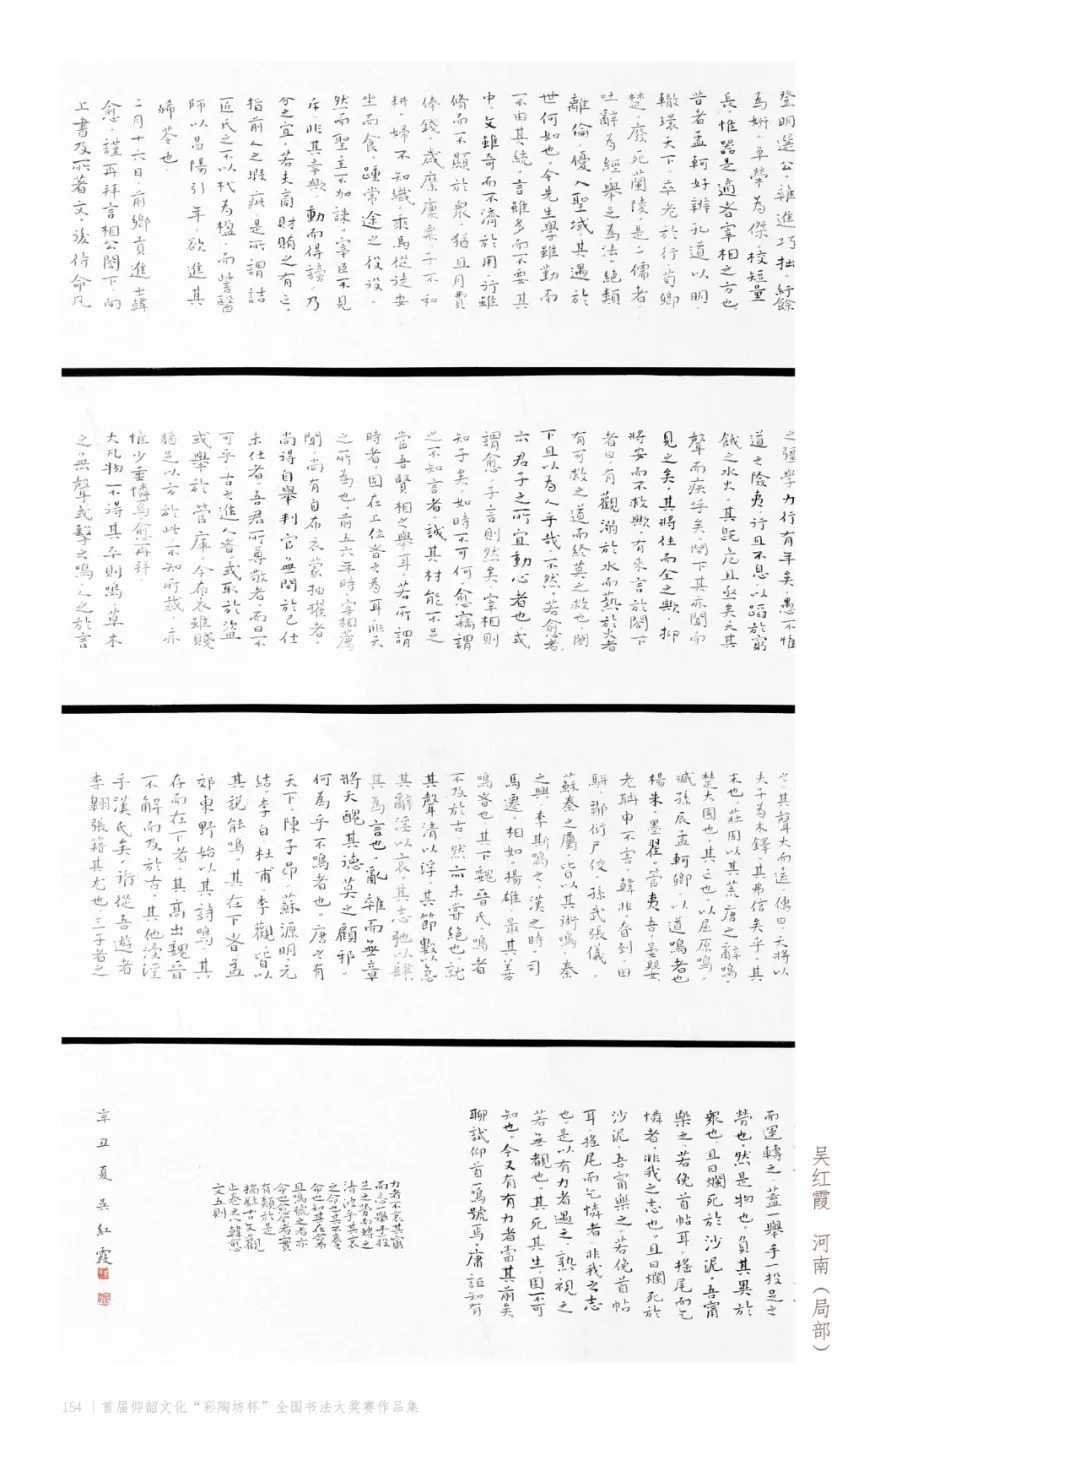 登明選公。雜進巧拙。紆餘
為妍。卓犖為傑。校短量
長。惟器是適者。宰相之方也。
昔者孟軻好辯。孔道以明。
轍環天下。卒老於行。荀卿
楚。廢死蘭陵。是二儒者。
吐辭為經。舉足為法。絕類
離倫。優入聖域。其遇於
世何如也。今先生學雖勤而
不由其統。言雖多而不要其
中。文雖奇而不濟於用。行雖
脩而不顯於衆。猶且月費
俸錢。歲糜廩粟。子不知
耕。婦不知織。乘馬從徒。安
坐而食。踵常途之役役。
然而聖主不加誅。宰臣不見
斥。非其幸歟。動而得謗。乃
分之宜。若夫商財賄之有亡。
指前人之瑕疵。是所謂詰
匠氏之不以杙為楹。而訾醫
師以昌陽引年。欲進其
豨苓也。
二月十六日。前鄉貢進士韓
愈。謹再拜言相公閤下。向
上書及所著文。後待命凡
之彊學力行有年矣。愚不惟
道之險夷。行且不息。以蹈於窮
餓之水火。其既危且亟矣。大其
聲而疾呼矣。閤下其亦聞而
見之矣。其將往而全之歟。抑
將安而不救歟。有來言於閤下
者曰。有觀溺於水而爇於火者。
有可救之道。而終莫之救也。閤
下且以為仁人乎哉。不然。若愈者。
亦君子之所宜動心者也。或
謂愈。子言則然矣。宰相則
知子矣。如時不可何。愈竊謂
之不知言者。誠其材能不足
當吾賢相之舉耳。若所謂
時者。固在上位者之為耳。非天
之所為也。前五六年時。宰相薦
聞。尚有自布衣蒙抽擢者。
尚得自舉判官。無間於已仕
未仕者。吾君所尊敬者。而曰不
可乎。古之進人者。或取於盜。
或舉於管庫。今布衣雖賤
猶足以方於此。不知所裁。亦
惟少垂憐焉。愈再拜。
大凡物不得其平則鳴。草木
之無聲。或擊之鳴。人之於言
其聲大而遠。傳曰。天將以
夫子為木鐸。其弗信矣乎。其
末也。莊周以其荒唐之辭鳴。
楚大國也。其亡也。以屈原鳴。
臧孫辰。孟軻。荀卿。以道鳴者也
楊朱。墨翟。管夷吾。晏嬰
老聃。申不害。韓非。慎到。田
駢。鄒衍。尸佼。孫武。張儀。
蘇秦之屬。皆以其術鳴。秦
之興。李斯鳴之。漢之時。司
馬遷。相如。揚雄。最其善
鳴者也。其下魏晉氏。鳴者
不及於古。然亦未嘗絕也。就
其聲清以浮。其節數以急
其辭淫以哀。其志弛以肆。
其為言也。亂雜而無章
將天醜其德莫之顧邪。
何為乎不鳴者也。唐之有
天下。陳子昂。蘇源明。元
結。李白。杜甫。李觀。皆以
其說能鳴。其在下者。孟
郊東野。始以其詩鳴。其
存而在下者。其高出魏晉
不解而及於古。其他浸淫
乎漢氏矣。從吾遊者
李翱張籍其尤也。三子者之
而運轉之。蓋一舉手一投足之
勞也。然是物也。負其異於
衆也。且曰爛死於沙泥。吾甯
樂之。若俛首帖耳。搖尾而乞
憐者。非我之志也。且曰爛死於
沙泥。吾甯樂之。若俛首帖
耳。搖尾而乞憐者。非我之志
也。是以有力者遇之。熟視之
若無覩也。其死其生。固不可
知也。今又有有力者當其前矣
聊試仰首一鳴號焉。庸詎知有
力者不哀其窮
而忘一舉手一投
足之勞而轉之
清波乎其哀
之命也其不哀
命也知其在命
且鳴號之者亦
命也愈今者實
有類於是
文五則
辛丑夏吳紅霞
吴红霞 河南(局部)
154 首届仰韶文化“彩陶坊杯”全国书法大奖赛作品集